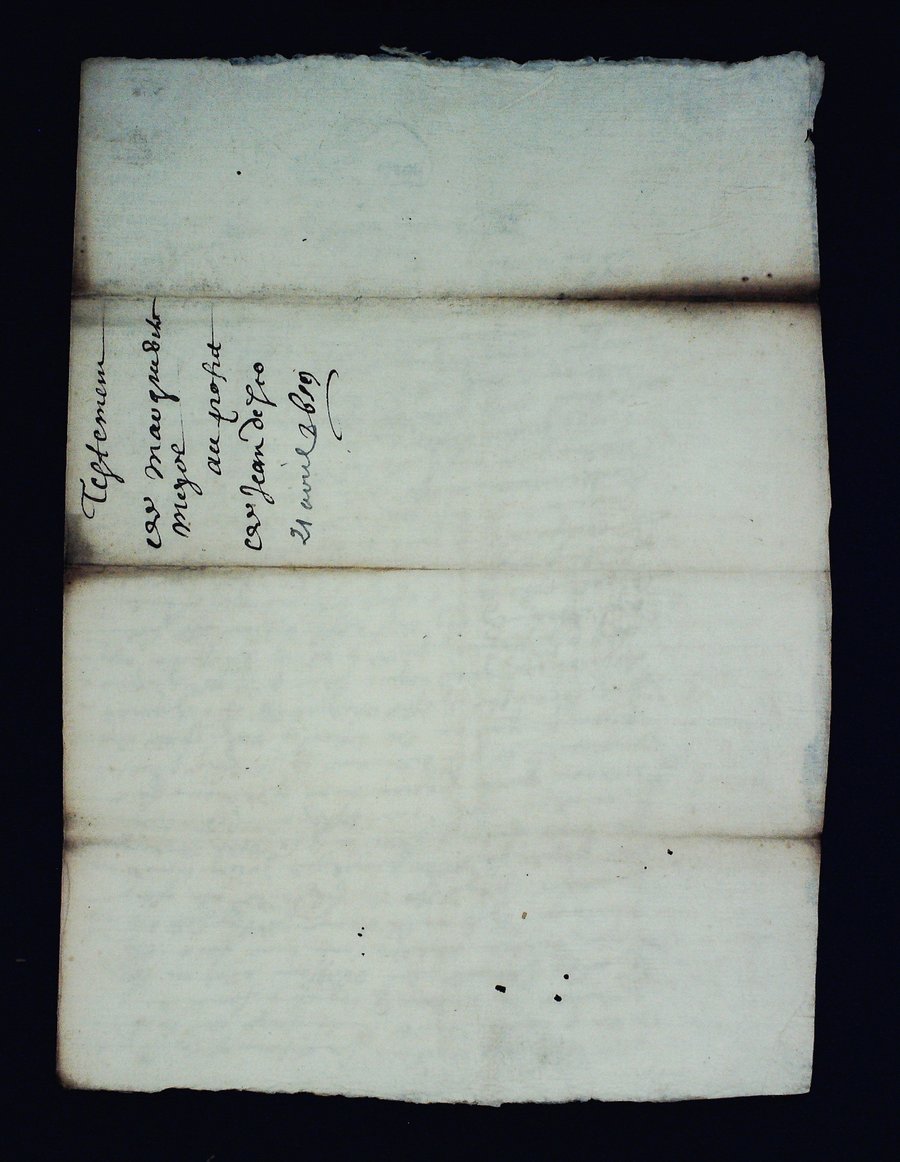 Testemen
de marguerite
megot
au profit
de Jean de
21 avril